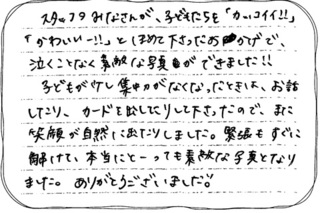 スタッフみなさんが、子どもたちを「カッコイイ!!」
「かわいいー!!」とほめて下さったおかげで、
泣くことなく素敵な写真ができました!!
子どもが少し集中力がなくなったときは、お話
したり、カードを出したりして下さったので、また
笑顔が自然に出たりしました。緊張もすぐに
解けて、本当にとーっても素敵な写真となり
ました。ありがとうございました!!